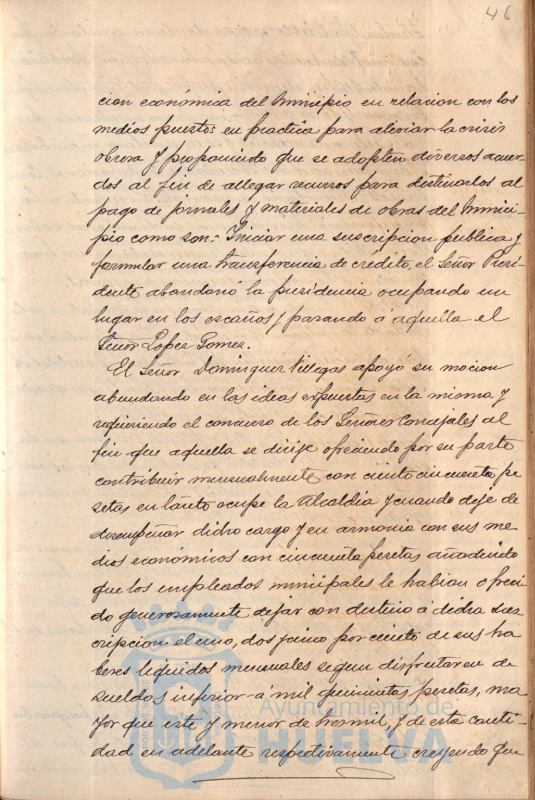 46
cion económica del Municipio en relacion con los
medios puestos en practica para aliviar la crisis
obrera y proponiendo que se adopten diversos acuer-
dos al fin de allegar recursos para destinarlos al
pago de jornales y materiales de obras del Munici-
pio como son: Iniciar una suscripcion pública y
formular una transferencia de crédito, el Señor Presi-
dente abandonó la presidencia ocupando un
lugar en los escaños y pasando á aquella el
Señor Lopez Gomez.
El Señor Dominguez Villegas apoyó su mocion
abundando en las ideas expuestas en la misma y
requiriendo el concurso de los Señores Concejales al
fin que aquella se dirije ofreciendo por su parte
contribuir mensualmente con ciento cincuenta pe
setas en tánto ocupe la Alcaldía y cuando deje de
desempeñar dicho cargo y en armonia con sus me
dios económicos con cincuenta pesetas añadiendo
que los empleados municipales le habian ofreci
do generosamente dejar con destino á dicha sus
cripcion el uno, dos y cinco por ciento de sus ha
beres líquidos mensuales segun disfrutasen de
sueldos inferior á mil quinientas pesetas, ma
yor que este y menor de tres mil, y de esta canti-
dad en adelante respectivamente creyendo que
Ayuntamiento de
HUELVA